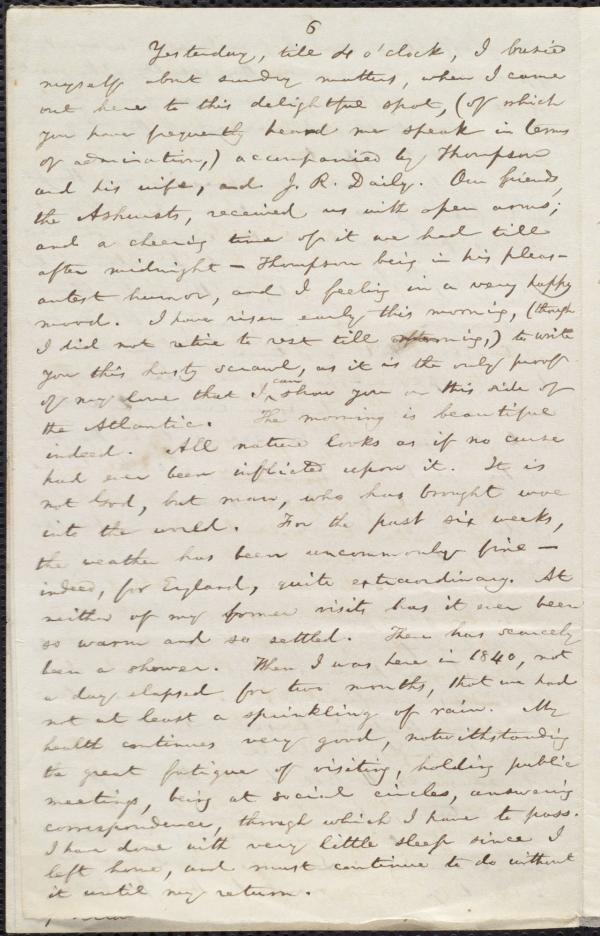 6
Yesterday, till 4 o'clock, I busied
myself about sundry matters, when I came
out here to this delightful spot, (of which
you have frequently heard me speak in terms
of admiration,) accompanied by Thompson
and his wife, and J. R. Daily. Our friends,
the Ashursts, received us with open arms;
and a cheering time of it we had till
after midnight — Thompson being in his pleas-
antest humor, and I feeling in a very happy
mood. I have risen early this morning, (though
I did not retire to rest till morning,) to write
you this hasty scrawl, as it is the only proof
of my love that I can show you on this side of
the Atlantic. The morning is beautiful
indeed. All nature looks as if no curse
had ever been inflicted upon it. It is
not God, but man, who has brought woe
into the world. For the past six weeks,
the weather has been uncommonly fine —
indeed, for England, quite extraordinary. At
neither of my former visits has it ever been
so warm and so settled. There has scarcely
been a shower. When I was here in 1840, not
a day elapsed for two months, that we had
not at least a sprinkling of rain. My
health continues very good, notwithstanding
the great fatigue of visiting, holding public
meetings, being at social circles, answering
correspondence, through which I have to pass.
I have done with very little sleep since I
left home, and must continue to do without
it until my return.